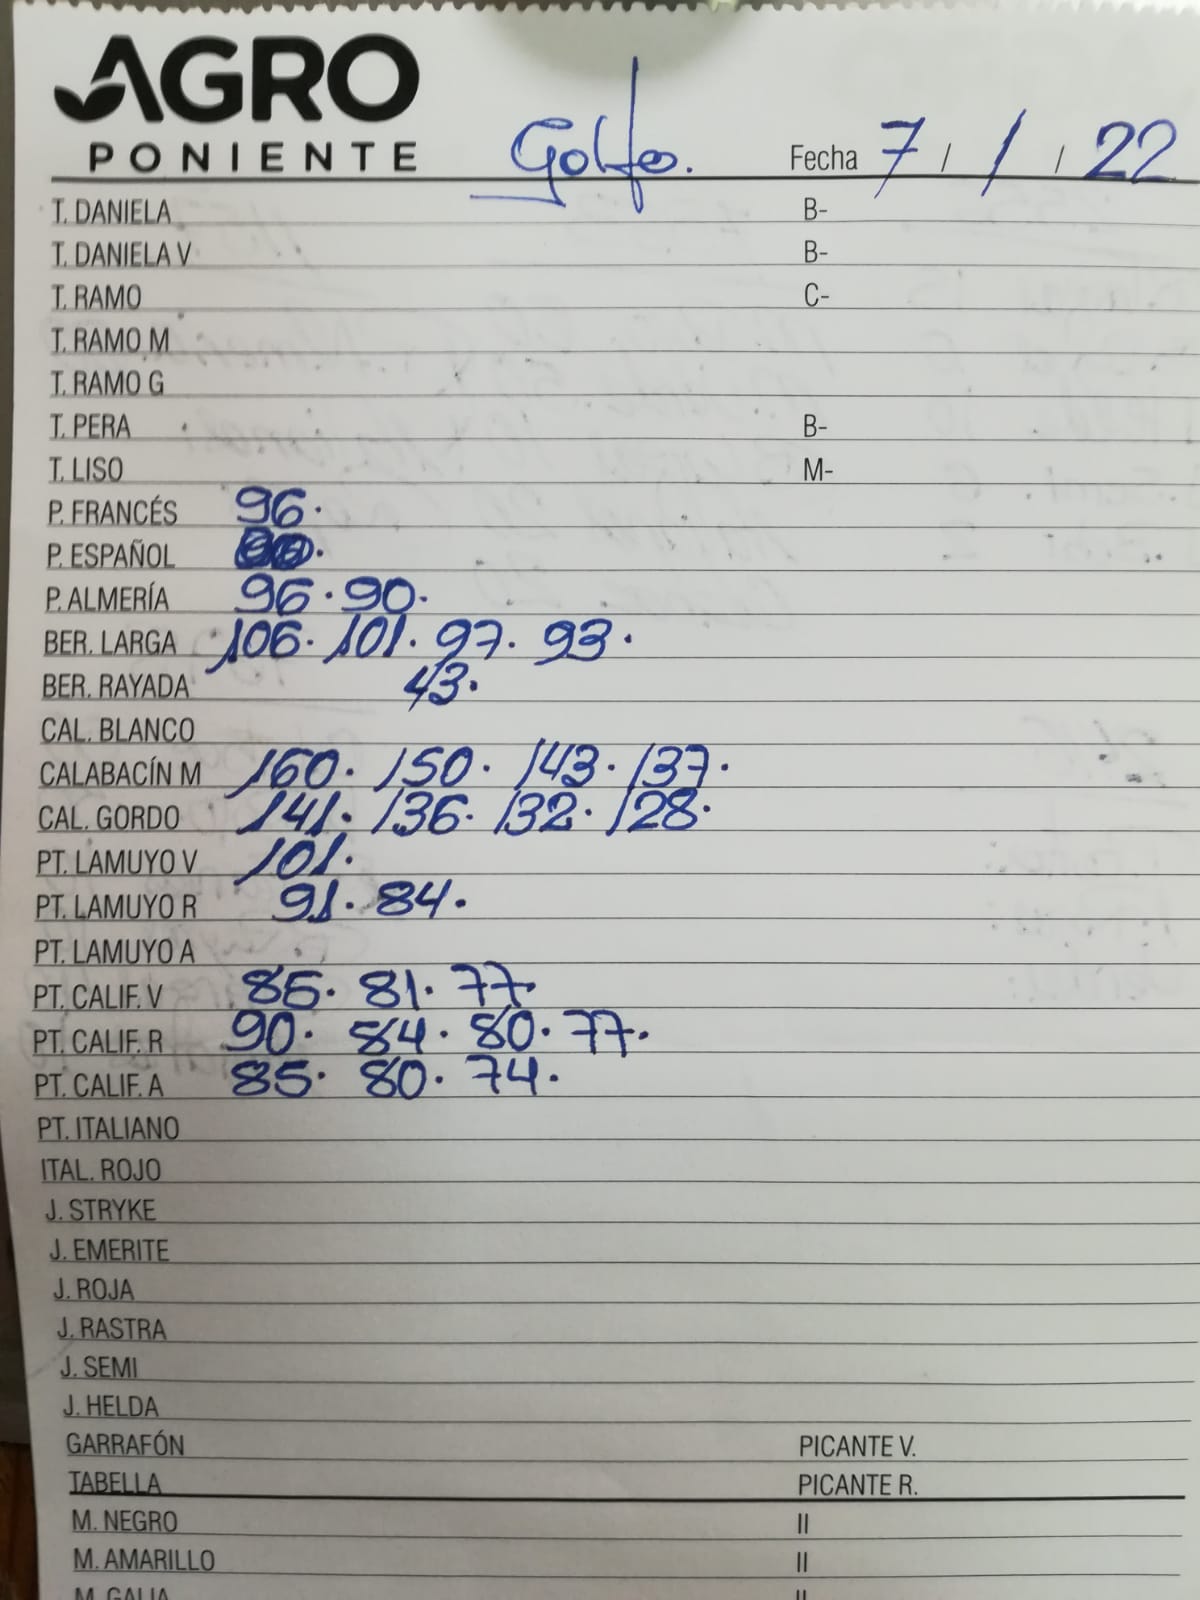 AGRO
PONIENTE
Golfo.
Fecha 7 / 1 / 22
T. DANIELA B-
T. DANIELA V B-
T. RAMO C-
T. RAMO M
T. RAMO G
T. PERA B-
T. LISO M-
P. FRANCÉS 96.
P. ESPAÑOL
P. ALMERÍA 96. 90.
BER. LARGA 106. 101. 97. 93.
BER. RAYADA 43.
CAL. BLANCO
CALABACÍN M 160. 150. 143. 137.
CAL. GORDO 141. 136. 132. 128.
PT. LAMUYO V 101.
PT. LAMUYO R 91. 84.
PT. LAMUYO A
PT. CALIF. V 85. 81. 77.
PT. CALIF. R 90. 84. 80. 77.
PT. CALIF. A 85. 80. 74.
PT. ITALIANO
ITAL. ROJO
J. STRYKE
J. EMERITE
J. ROJA
J. RASTRA
J. SEMI
J. HELDA
GARRAFÓN PICANTE V.
TABELLA PICANTE R.
M. NEGRO II
M. AMARILLO II
M. GALIA II